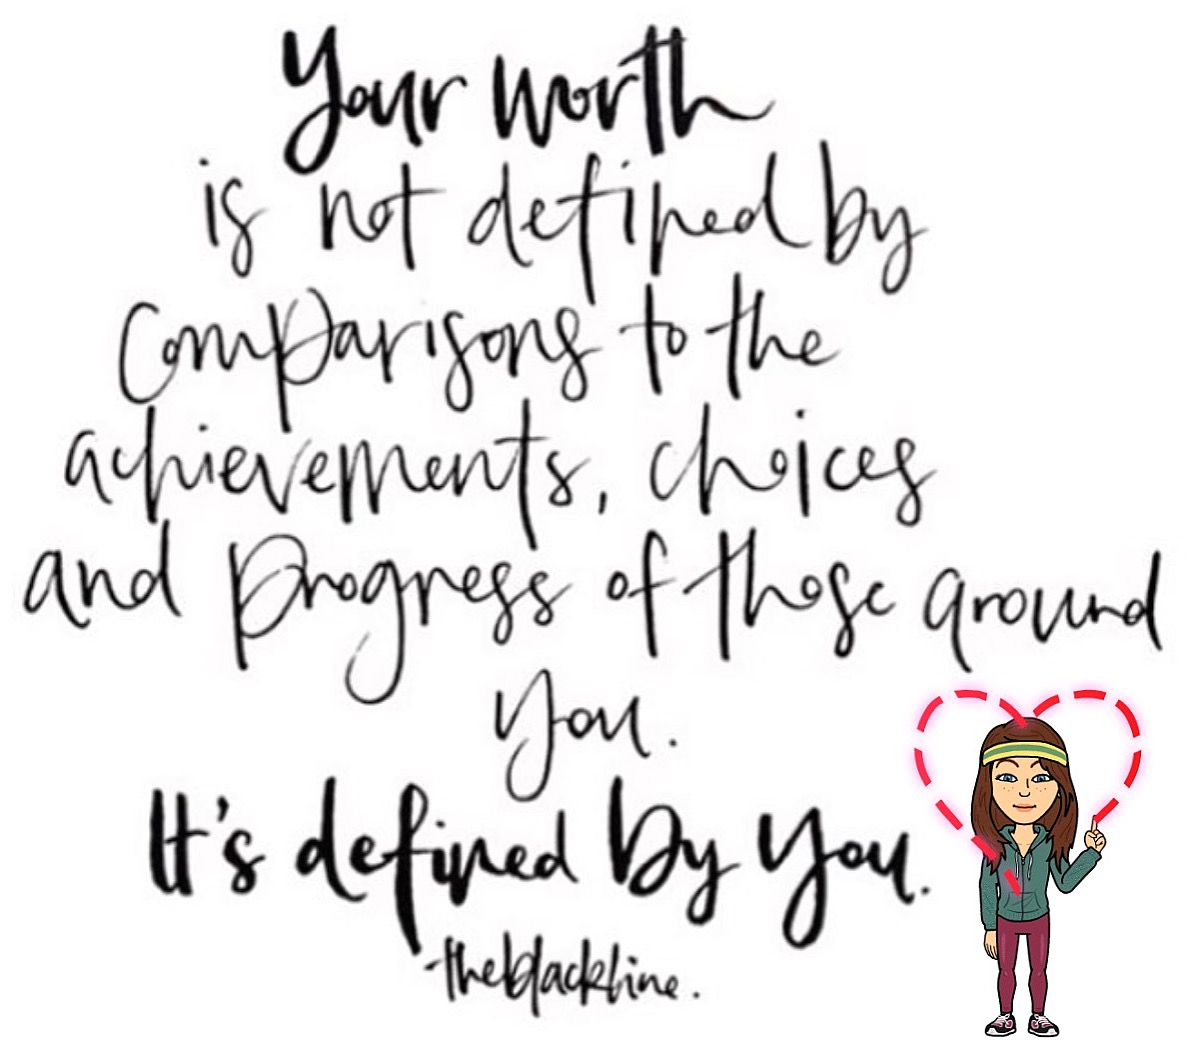 Your worth
is not defined by
comparisons to the
achievements, choices
and progress of those around
you.
It's defined by you.
-theblackline.